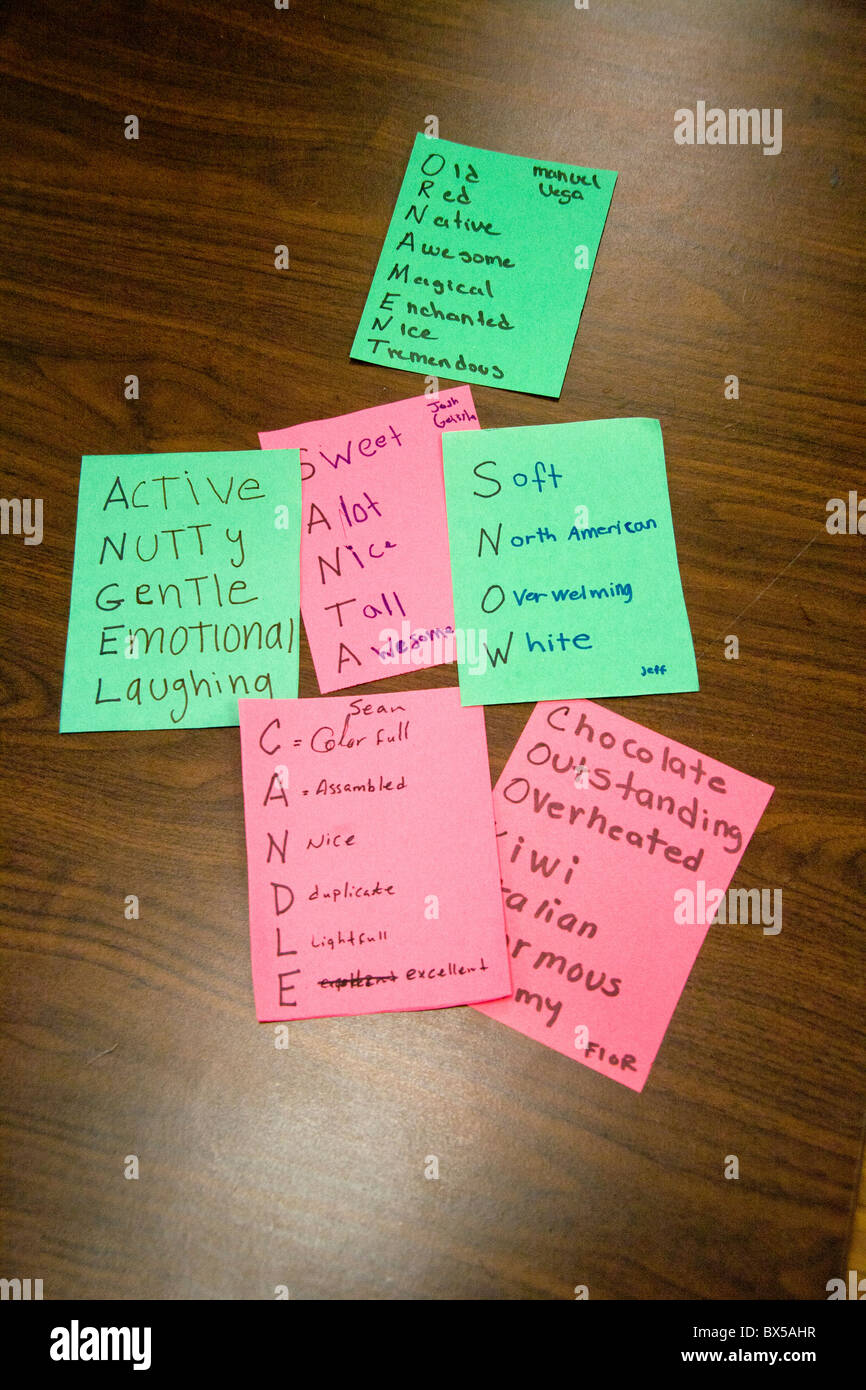 Old
Red
Native
Awesome
Magical
Enchanted
Nice
Tremendous
manuel
Vega
Sweet
Alot
Nice
Tall
Awesome
Josh
Active
Nutty
Gentle
Emotional
Laughing
Soft
North American
Overwelming
White
Jeff
Sean
C = Color full
A = Assambled
N Nice
D duplicate
L Lightfull
E excellent
Chocolate
Outstanding
Overheated
iwi
talian
rmous
my
FloR
alamy
alamy stock photo
BX5AHR
www.alamy.com